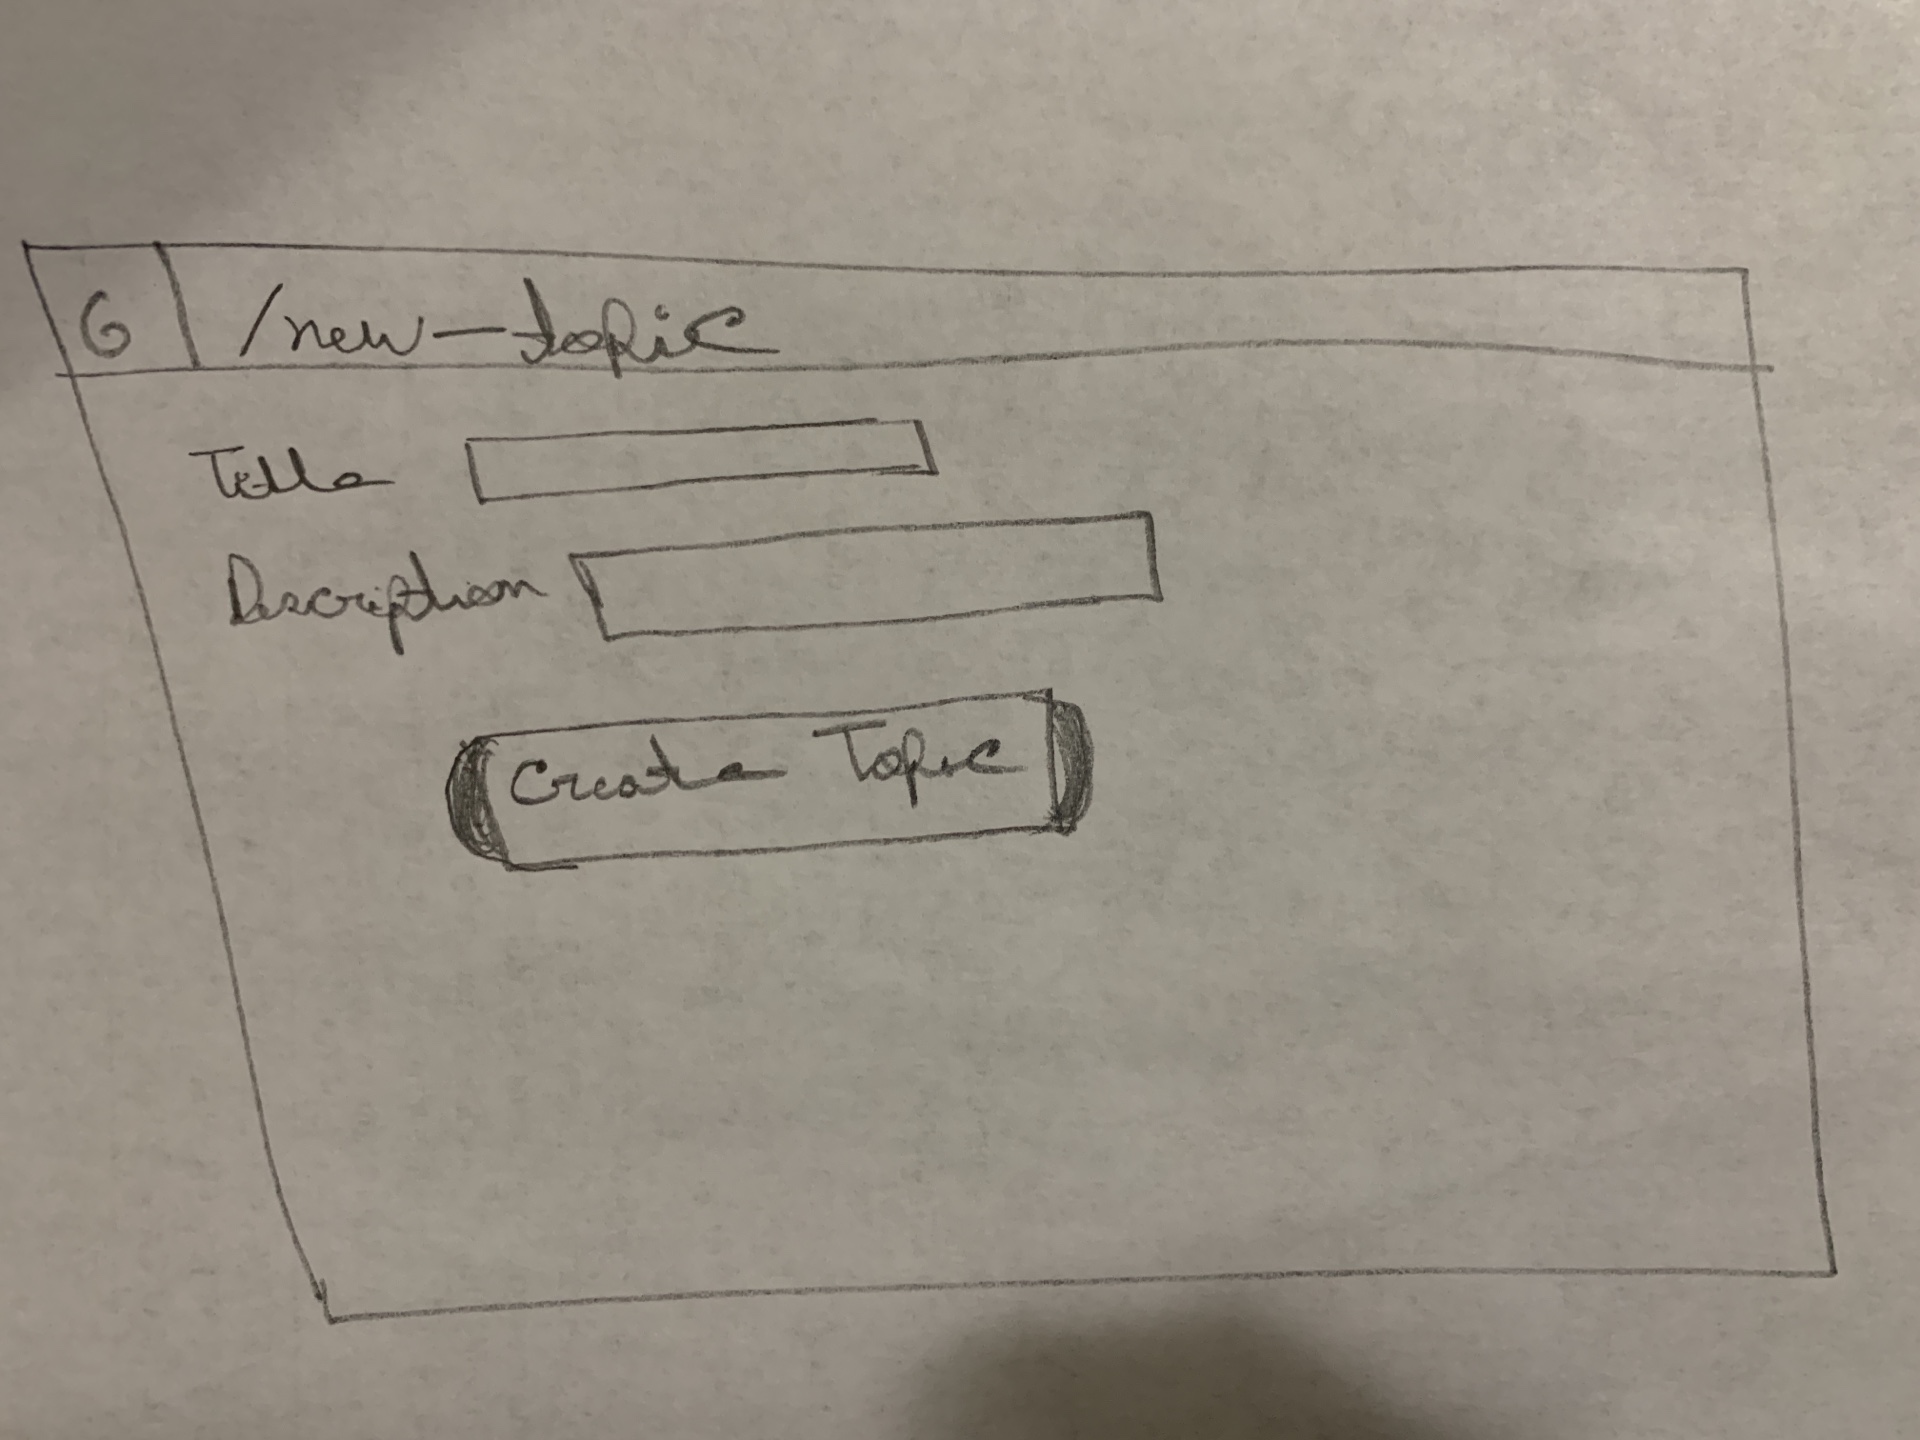 6 /new-topic
Title
Description
Create Topic